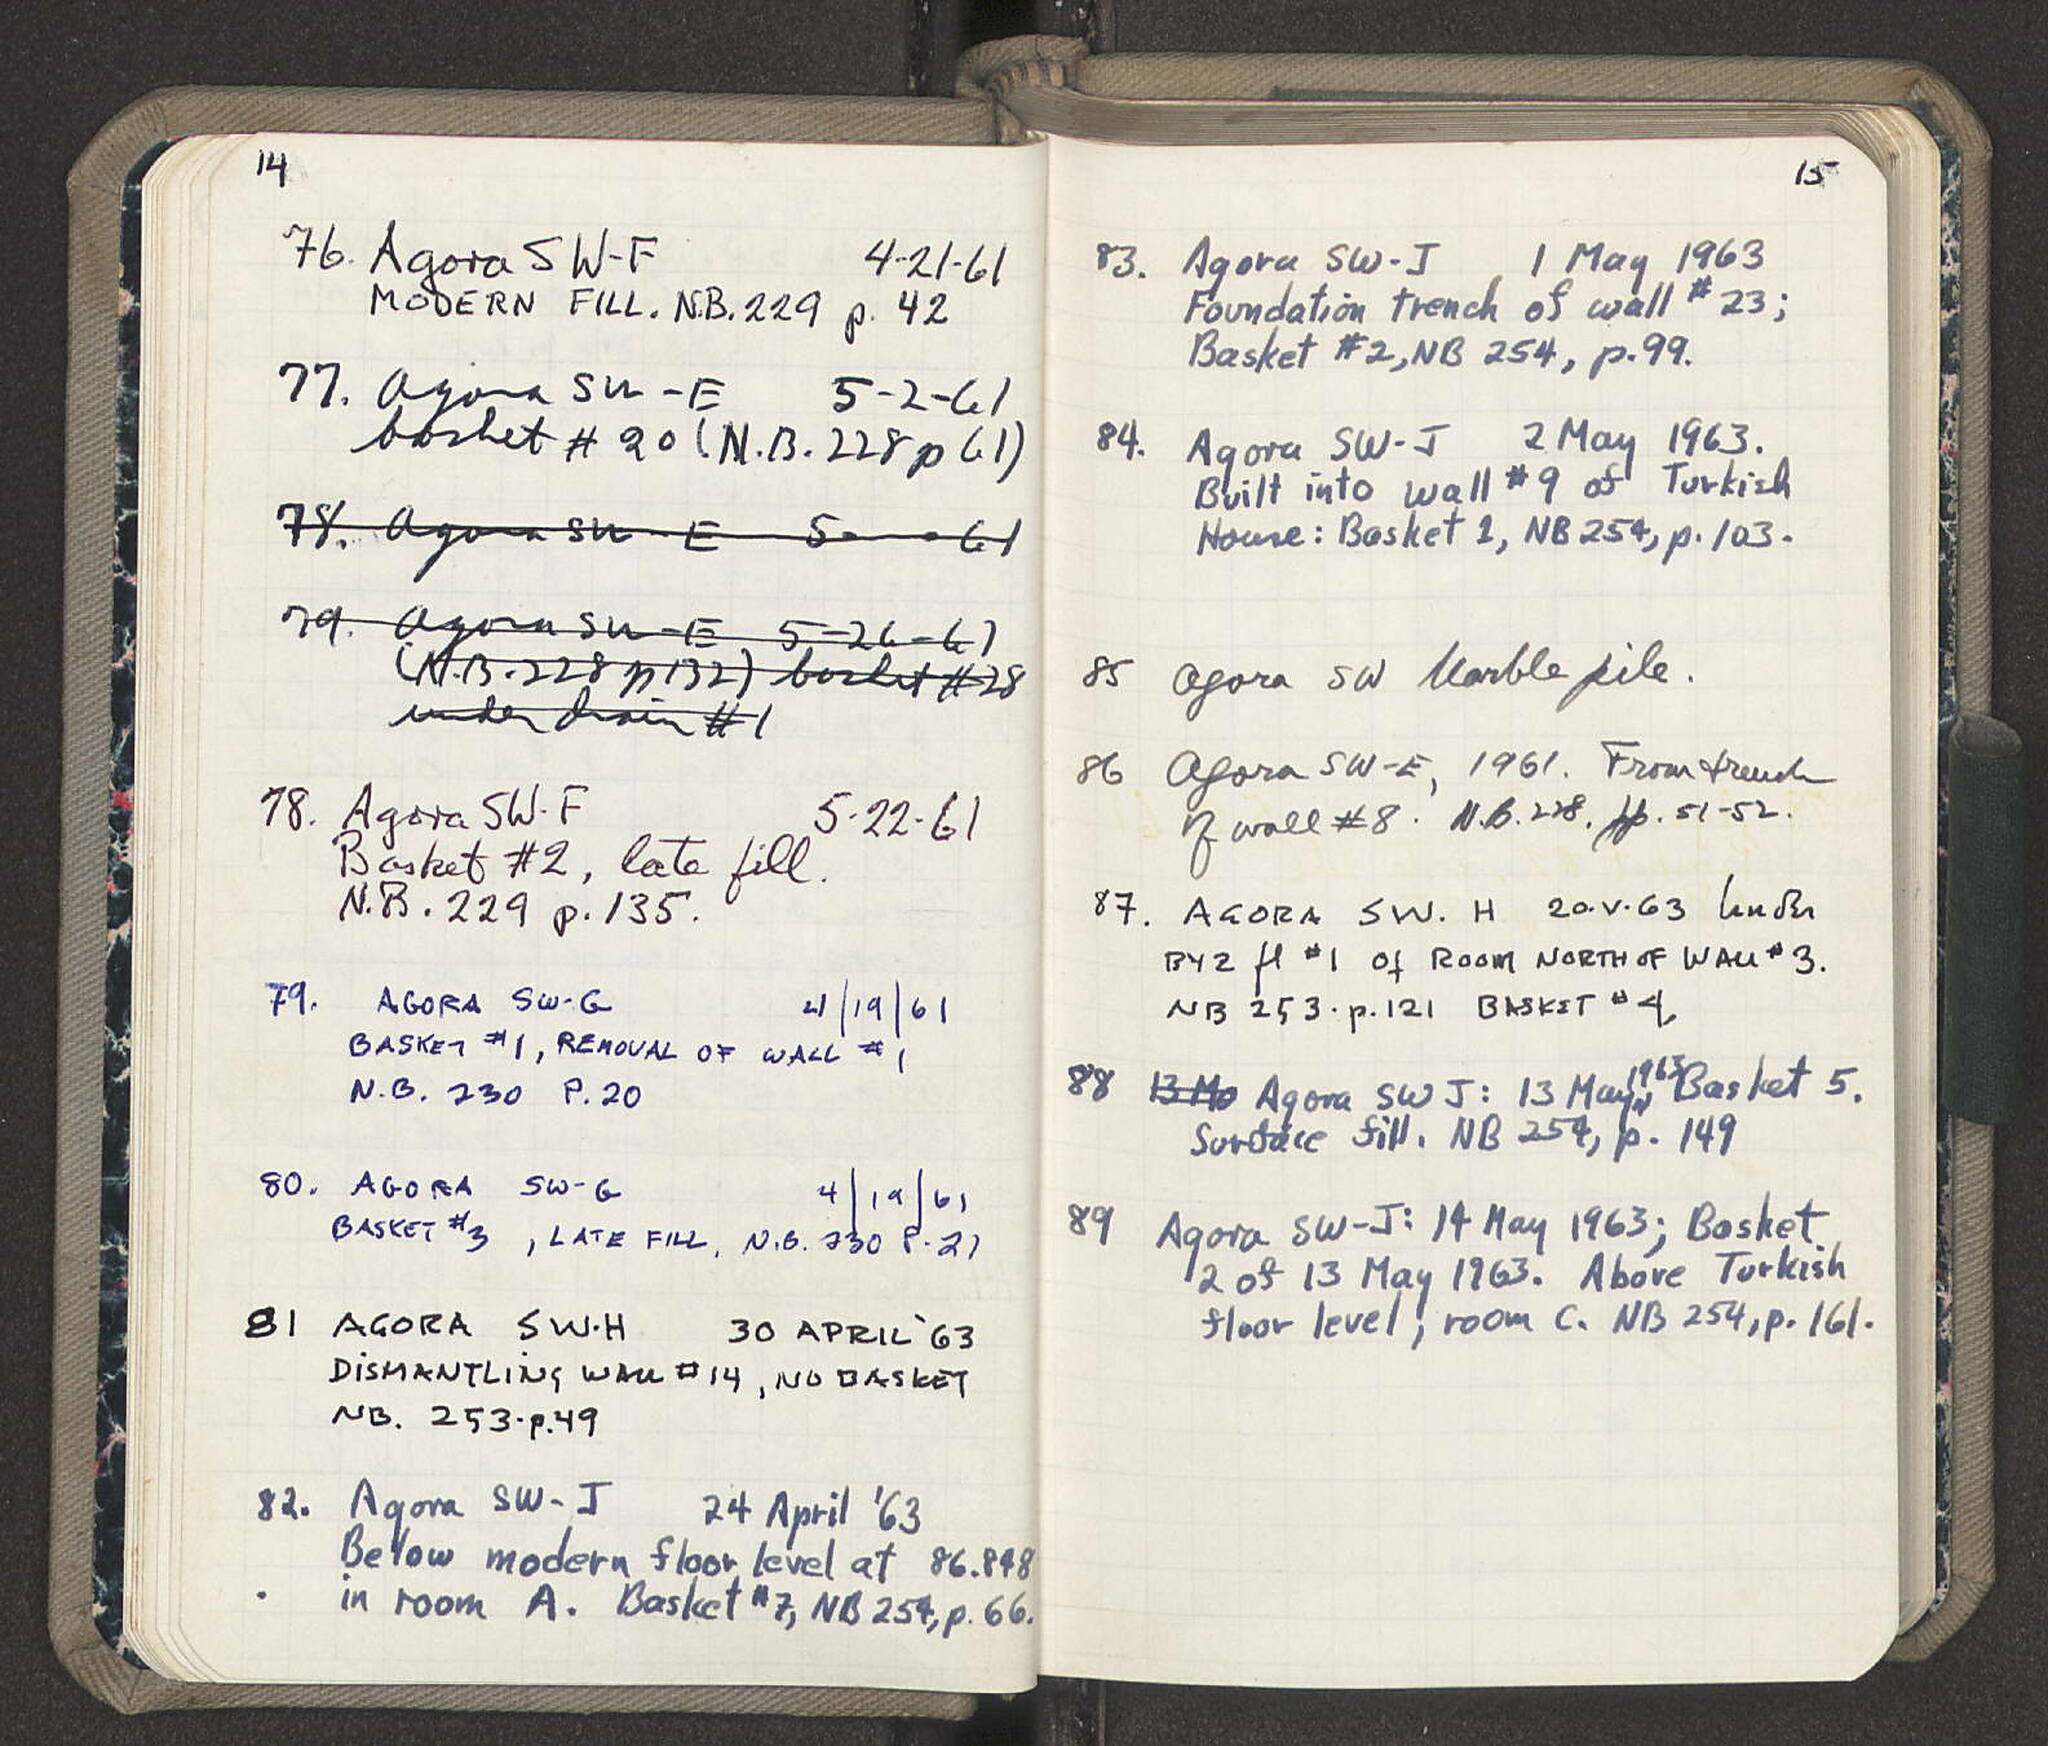 14
76. Agora SW-F 4-21-61
MODERN FILL. N.B. 229 p. 42
77. Agora SW-E 5-2-61
basket # 20 (N.B. 228 p 61)
78. Agora SW-E 5- - 61
79. Agora SW-E 5-26-61
(N.B. 228 p 132) basket #28
under drain #1
78. Agora SW-F 5-22-61
Basket #2, late fill.
N.B. 229 p. 135.
79. AGORA SW-G 4/19/61
BASKET #1, REMOVAL OF WALL #1
N.B. 230 P. 20
80. AGORA SW-G 4/19/61
BASKET #3, LATE FILL, N.B. 230 P. 21
81 AGORA SW-H 30 APRIL '63
DISMANTLING WALL #14, NO BASKET
NB. 253-p.49
82. Agora SW-J 24 April '63
Below modern floor level at 86.848
in room A. Basket #7, NB 254, p. 66.
15
83. Agora SW-J 1 May 1963
Foundation trench of wall #23;
Basket #2, NB 254, p. 99.
84. Agora SW-J 2 May 1963.
Built into wall #9 of Turkish
House: Basket 1, NB 254, p. 103.
85 Agora SW Marble pile.
86 Agora SW-E, 1961. From trench
of wall #8. N.B. 228, pp. 51-52.
87. AGORA SW. H 20.V.63 Under
BYZ fl #1 of ROOM NORTH OF WALL #3.
NB 253. p. 121 BASKET #4
88 13 Ma Agora SW J: 13 May 1963 Basket 5.
Surface fill. NB 254, p. 149
89 Agora SW-J: 14 May 1963; Basket
2 of 13 May 1963. Above Turkish
floor level, room C. NB 254, p. 161.